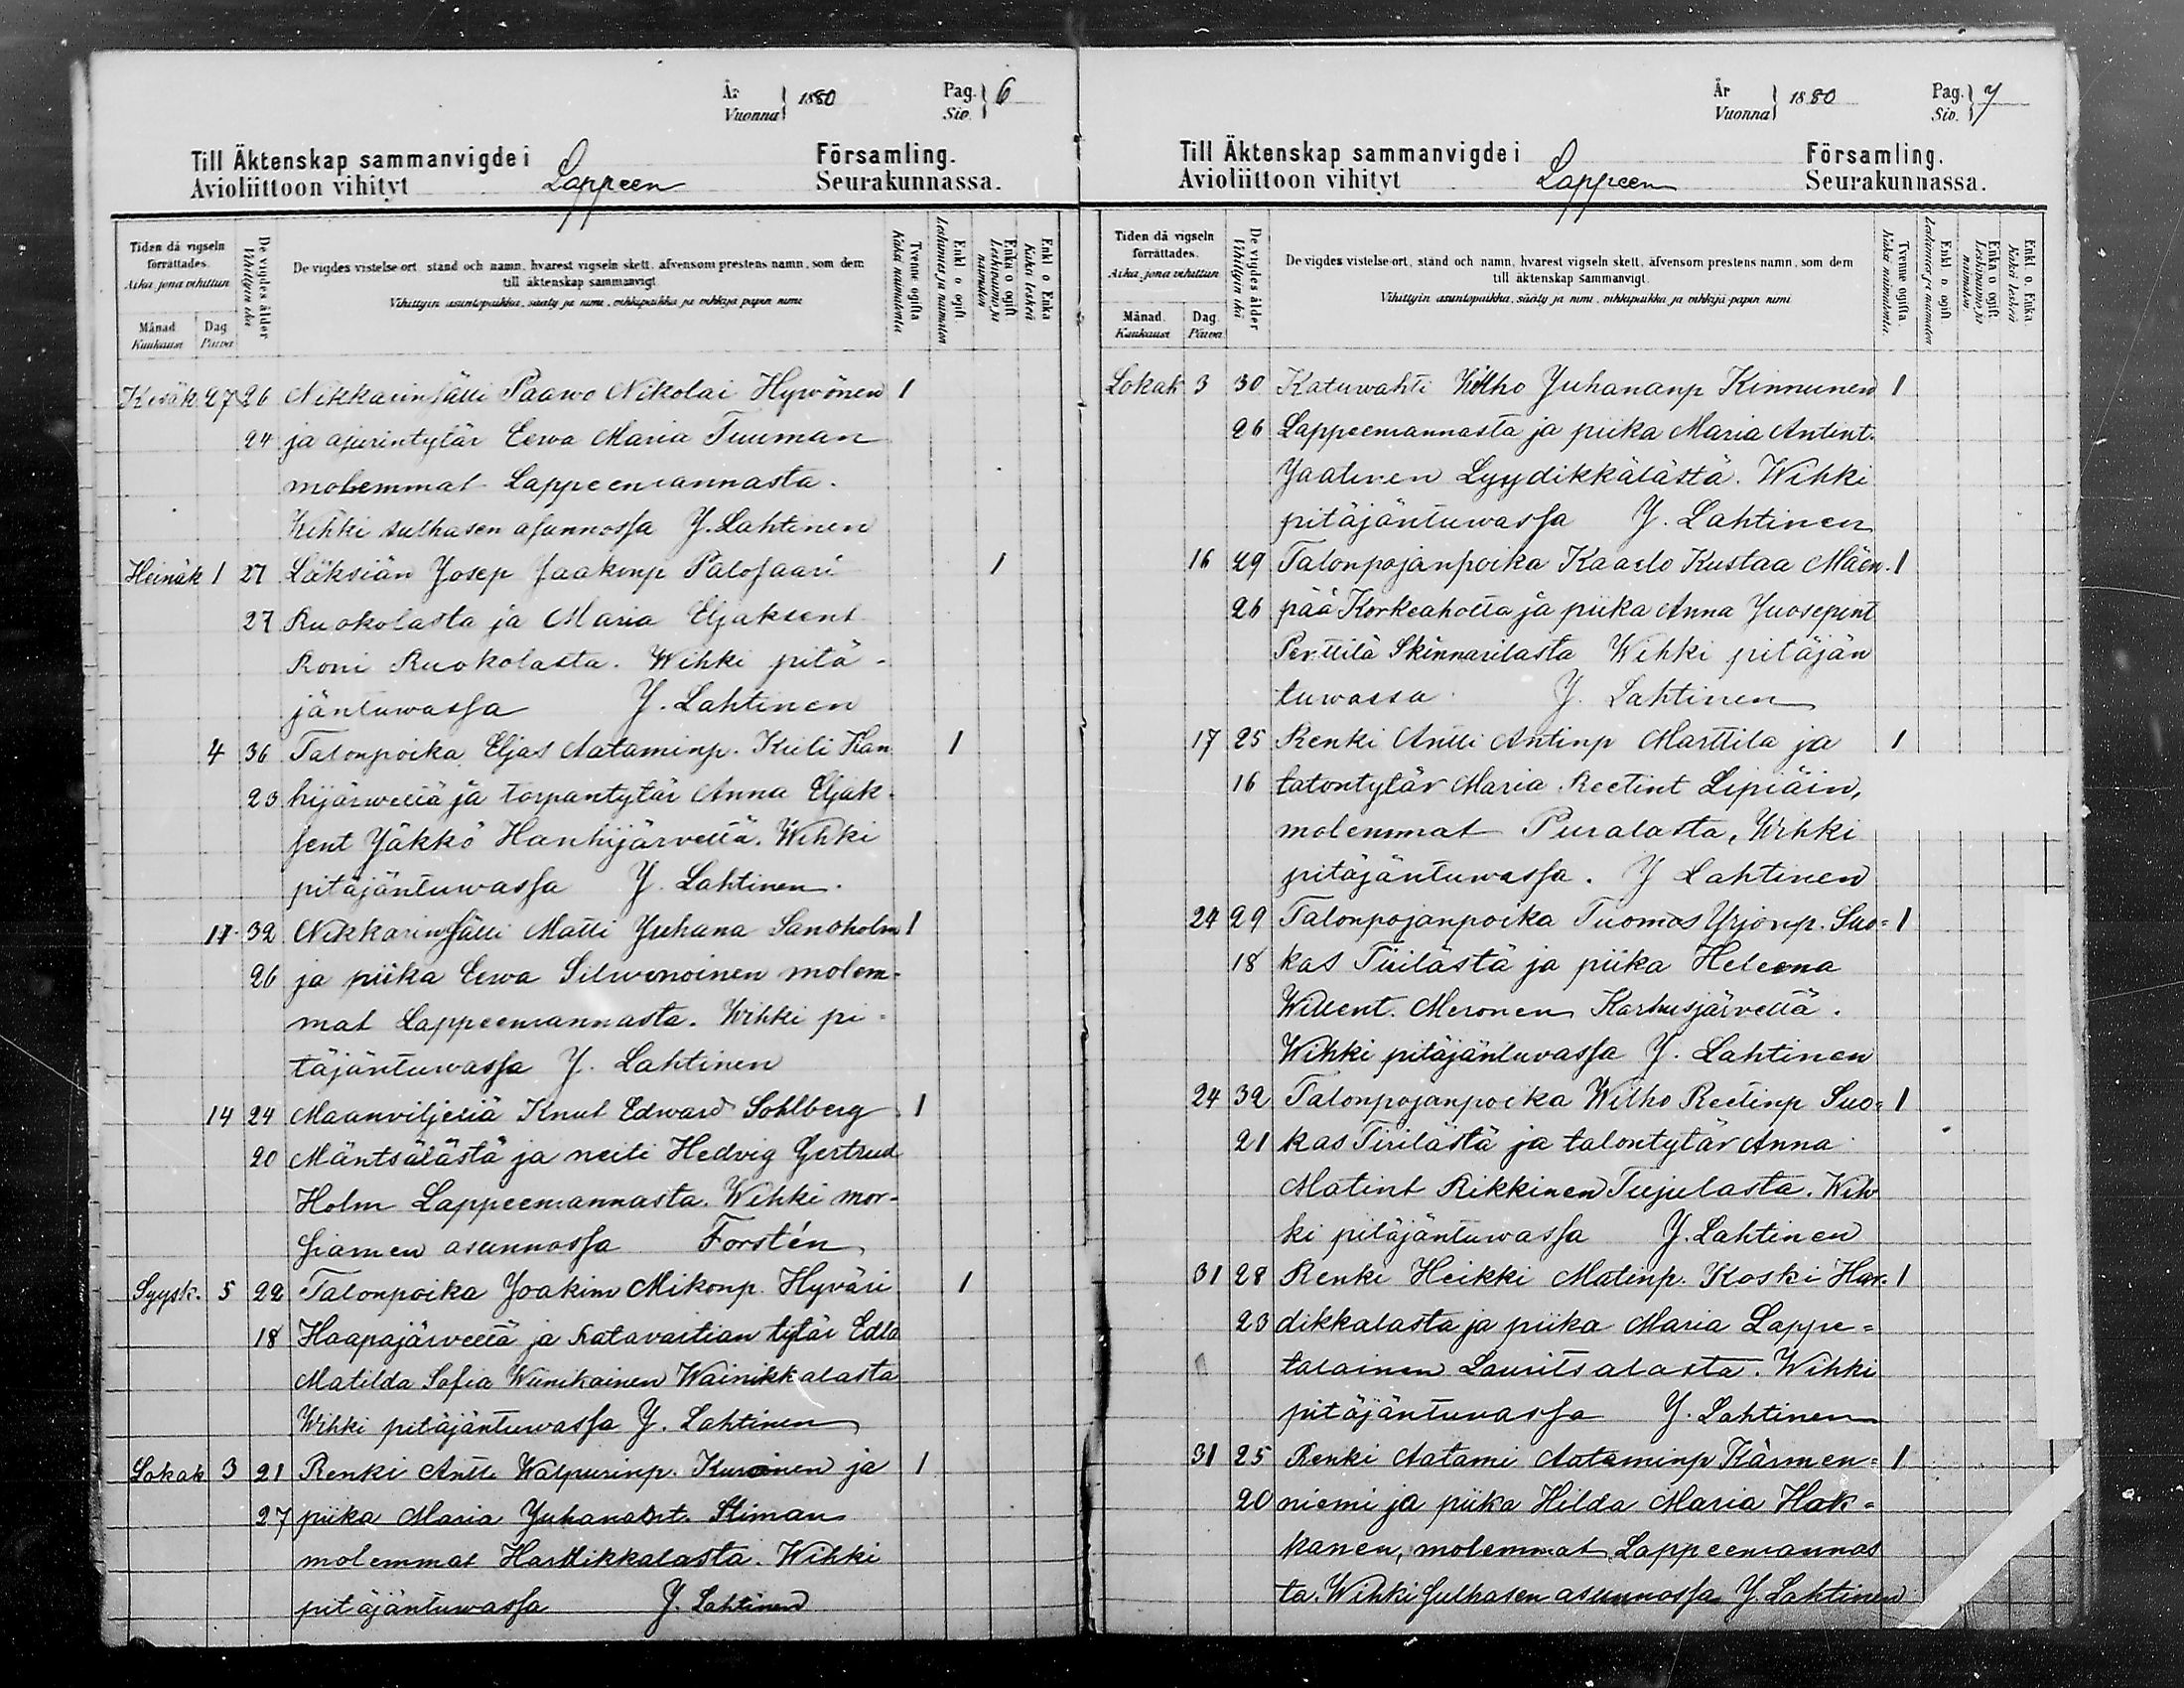 År
Vuonna } 1880
Pag.
Siv. } 6
Till Äktenskap sammanvigde i Församling.
Avioliittoon vihityt Lappeen Seurakunnassa.
Tiden då vigseln förrättades.
Aika, jona vihittiin
Månad Kuukausi
Dag Päivä
De vigdes ålder
Vihittyin ikä
De vigdes vistelse ort, stånd och namn, hvarest vigseln skett, äfvensom prestens namn, som dem
till äktenskap sammanvigt
Vihittyin asuntopaikka, sääty ja nimi, vihkipaikka ja vihkijä papin nimi
Tvenne ogifta
Kaksi naimatonta
Enkl. o. ogift.
Leskimies ja naimaton
Enka o. ogift
Leskivaimo ja naimaton
Enkl o Enka
Kaksi leskeä
Kesäk 27 26 Nikkarinsälli Paawo Nikolai Hywönen 1
24 ja ajurintytär Eewa Maria Tuuman
molemmat Lappeenrannasta.
Wihki sulhasen asunnossa J. Lahtinen
Heinäk 1 27 Läksiän Josep Jaakonp Palosaari 1
27 Ruokolasta ja Maria Eljaksent
Roni Ruokolasta. Wihki pitä-
jäntuwassa J. Lahtinen
4 36 Talonpoika Eljas Aataminp. Kuli Han 1
23 hijärweltä ja torpantytär Anna Eljak-
sent Jäkkö Hanhijärveltä. Wihki
pitäjäntuwassa J. Lahtinen.
11 32 Nikkarinsälli Matti Juhana Sandholm 1
26 ja piika Eewa Silwenoinen molem-
mat Lappeenrannasta. Wihki pi-
täjäntuwassa J. Lahtinen
14 24 Maanviljeliä Knut Edward Sohlberg 1
20 Mäntsälästä ja neiti Hedvig Gertrud
Holm Lappeenrannasta. Wihki mor-
siamen asunnossa Forstén
Syysk. 5 22 Talonpoika Joakim Mikonp. Hyväri 1
18 Haapajärveltä ja ratavartian tytär Edla
Matilda Sofia Wiinikainen Wainikkalasta
Wihki pitäjäntuwassa J. Lahtinen
Lokak 3 21 Renki Antti Walpurinp. Kuroinen ja 1
27 piika Maria Juhanant. Stiman
molemmat Harttikkalasta. Wihki
pitäjäntuwassa J. Lahtinen
År
Vuonna } 1880
Pag.
Siv. } 7
Till Äktenskap sammanvigde i Församling.
Avioliittoon vihityt Lappeen Seurakunnassa.
Tiden då vigseln förrättades.
Aika, jona vihittiin
Månad. Kuukausi
Dag. Päivä
De vigdes ålder
Vihittyin ikä
De vigdes vistelse ort, stånd och namn, hvarest vigseln skett, äfvensom prestens namn, som dem
till äktenskap sammanvigt.
Vihittyin asuntopaikka, sääty ja nimi, vihkipaikka ja vihkijä papin nimi
Tvenne ogifta.
Kaksi naimatonta.
Enkl. o. ogift
Leskimies ja naimaton
Enka o. ogift.
Leskivaimo ja naimaton.
Enkl. o. Enka.
Kaksi leskeä
Lokak 3 30 Katuwahti Wilho Juhananp Kinnunen 1
26 Lappeenrannasta ja piika Maria Antint.
Jaatinen Lyydikkälästä. Wihki
pitäjäntuwassa J. Lahtinen
16 29 Talonpojanpoika Kaarlo Kustaa Mäen- 1
26 pää Korkeaholta ja piika Anna Juosepint
Perttilä Skinnarilasta Wihki pitäjän
tuwassa J. Lahtinen
17 25 Renki Antti Antinp Marttila ja 1
16 talontytär Maria Reetint Lipiäin,
molemmat Puralasta, Wihki
pitäjäntuwassa. J Lahtinen
24 29 Talonpojanpoika Tuomas Yrjönp. Suo= 1
18 kas Tiirilästä ja piika Heleena
Willent. Meronen Karhusjärveltä.
Wihki pitäjäntuvassa J. Lahtinen
24 32 Talonpojanpoika Wilho Reetinp Suo= 1
21 kas Tiirilästä ja talontytär Anna
Matint Rikkinen Tujulasta. Wih
ki pitäjäntuwassa J. Lahtinen
31 28 Renki Heikki Matinp. Koski Har- 1
23 dikkalasta ja piika Maria Lappe=
talainen Lauritsalasta. Wihki
pitäjäntuvassa J. Lahtinen
31 25 Renki Aatami Aataminp Kärmen= 1
20 niemi ja piika Hilda Maria Hak=
kanen, molemmat Lappeenrannas
ta. Wihki sulhasen asunnossa J. Lahtinen